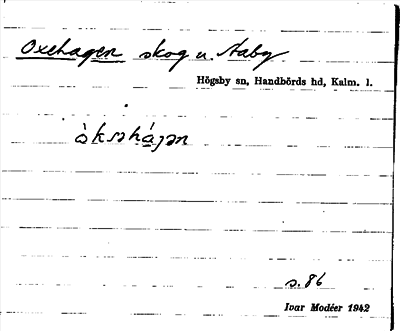 Oxehagen skog u. Staby.
Högsby sn, Handbörds hd, Kalm. l.
àksəhájən
s. 86
Ivar Modéer 1942